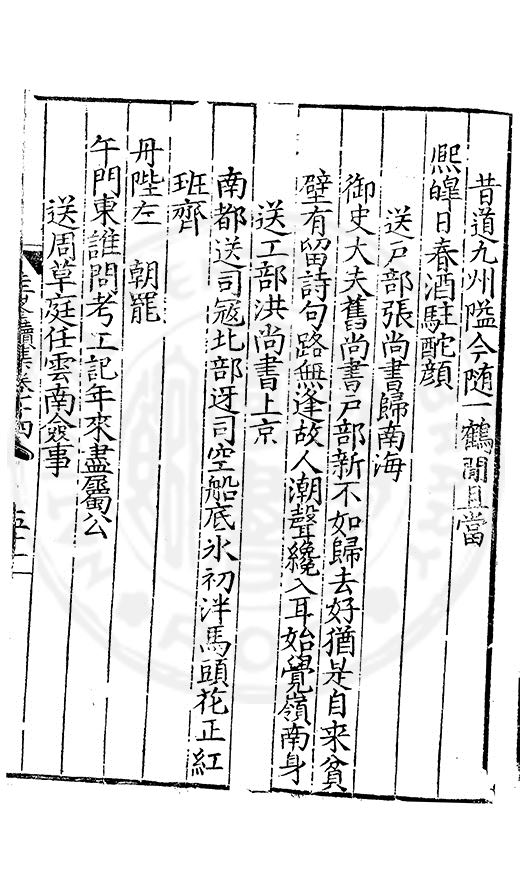 昔道九州隘今随一鶴閒且當
熙皥日春酒駐酡顔
送戸部張尚書歸南海
御史大夫舊尚書戸部新不如歸去好猶是自来貧
壁有留詩句路無逢故人潮聲纔入耳始覺嶺南身
送工部洪尚書上京
南都送司寇北部迓司空船底氷初泮馬頭花正紅
班齊
丹陛左　朝罷
午門東誰問考工記年來盡屬公
送周草庭任雲南僉事
續集卷十四